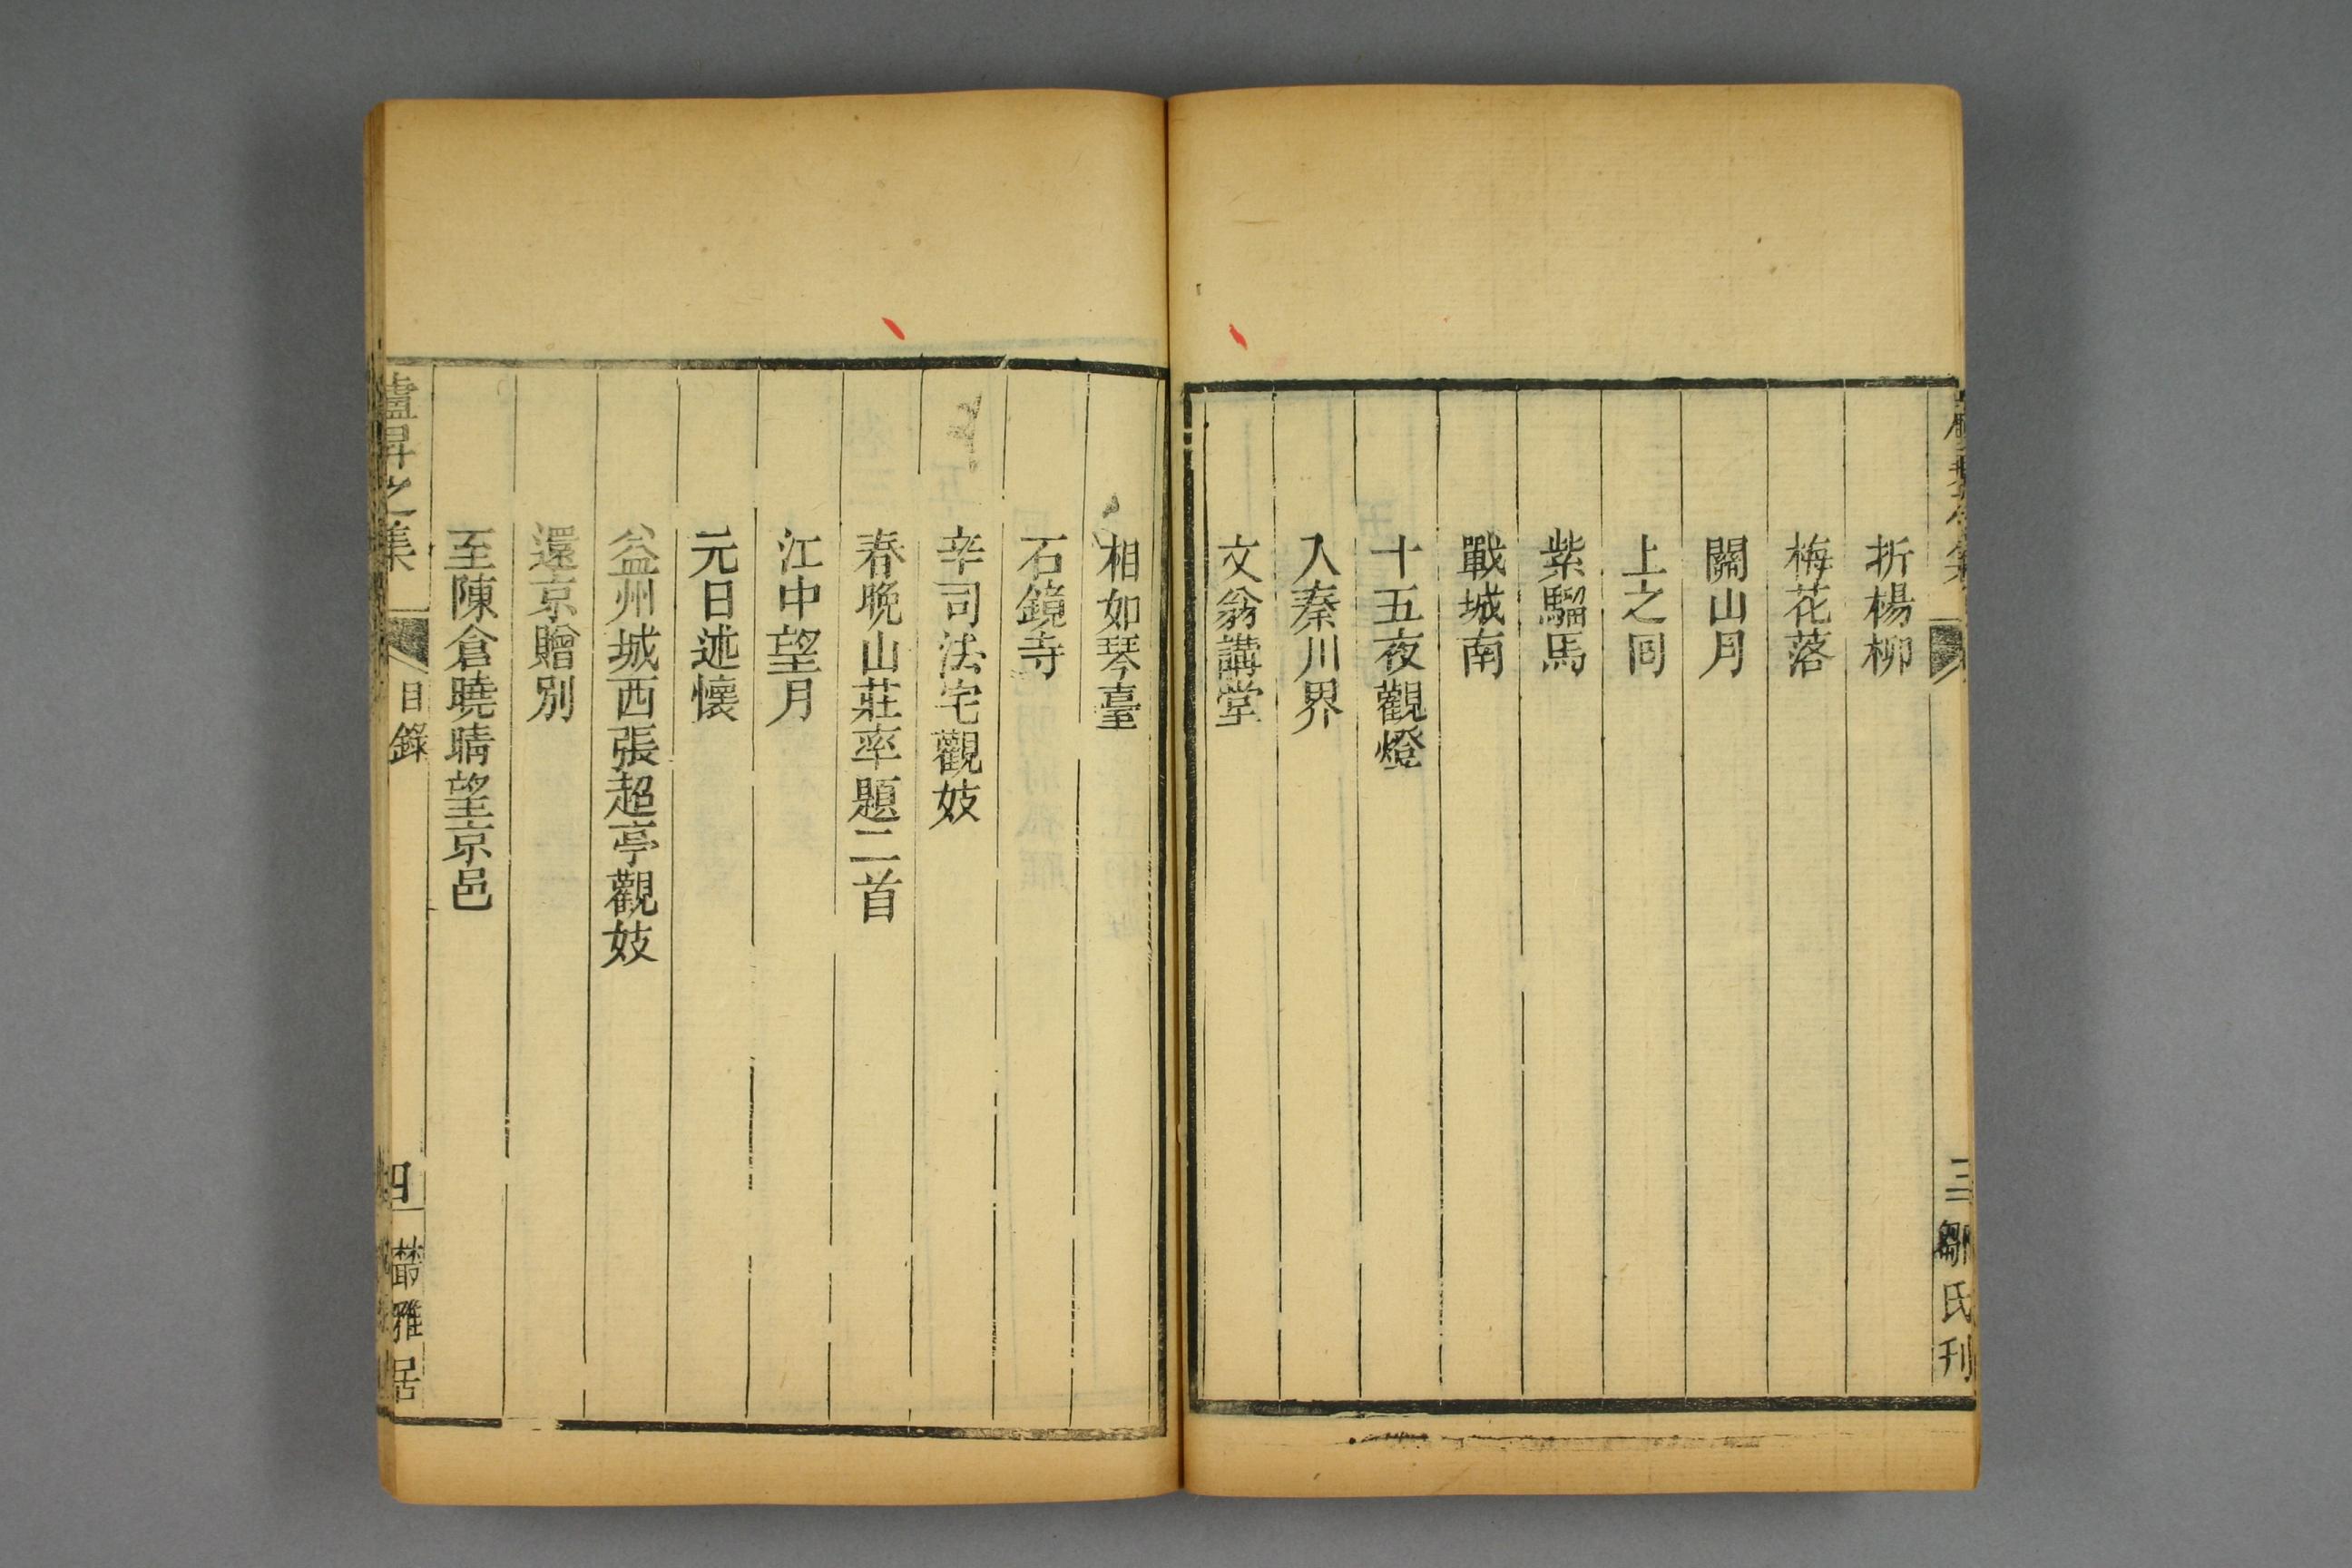 折楊柳
梅花落
關山月
上之囘
紫騮馬
戰城南
十五夜觀燈
入秦川界
文翁講堂
三 鄒氏刊
相如琴臺
石鏡寺
辛司法宅觀妓
春晚山莊率題二首
江中望月
元日述懷
益州城西張超亭觀妓
還京贈別
至陳倉曉晴望京邑
盧昇之集 目錄 四 叢雅居